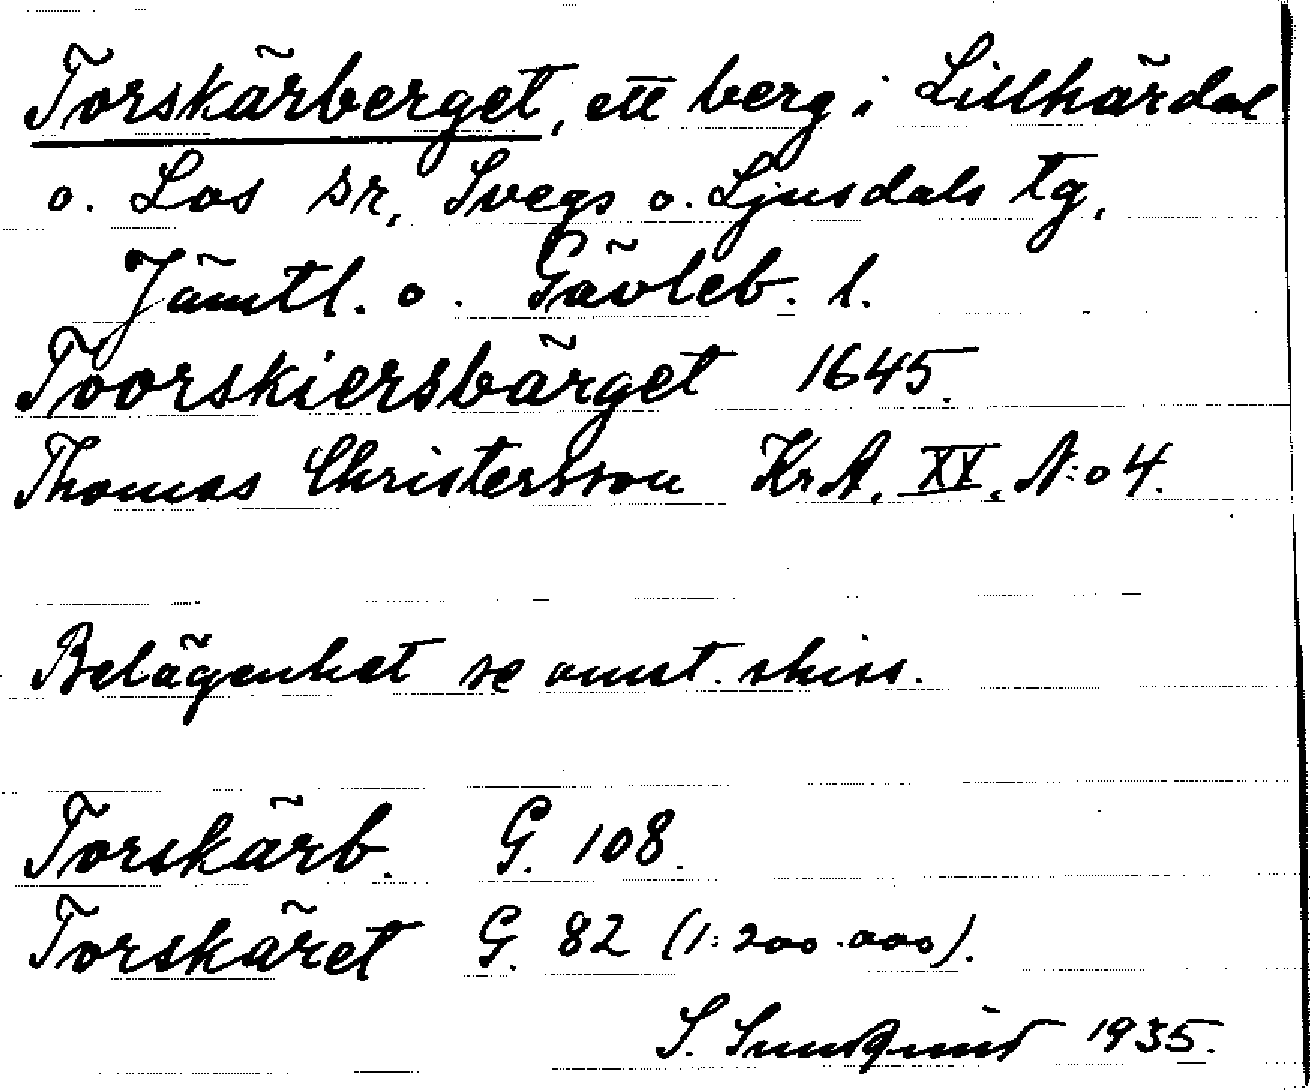 Torskärberget, ett berg i Lillhärdal
o. Los sr, Svegs o. Ljusdals tg,
Jämtl. o. Gävleb. l.
Toorskiersbärget 1645.
Thomas Christersson KrA. XV. N:o 4.
Belägenhet se omst. skiss.
Torskärb. G. 108.
Torskäret G. 82 (1:200.000).
S. Sundquist 1935.